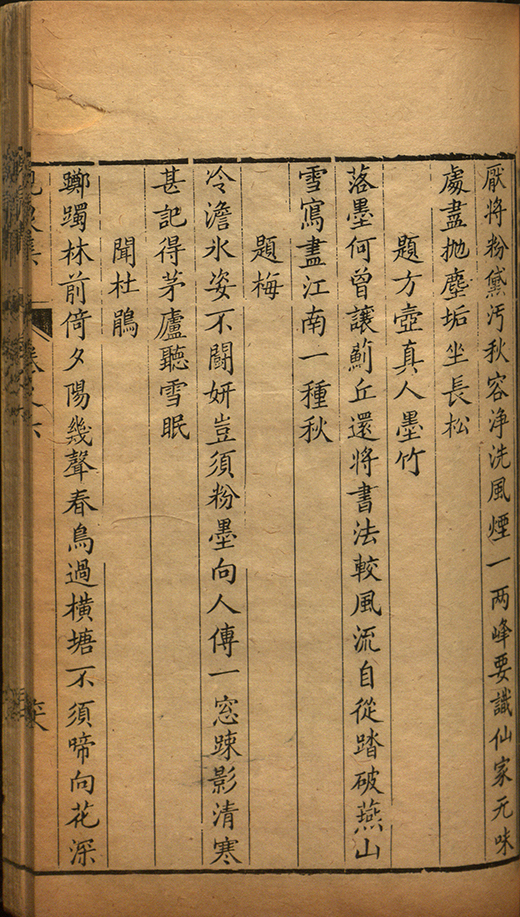 厭將粉黛汚秋容浄洗風煙一两峰要識仙家元味
處盡抛塵垢坐長松
題方壺真人墨竹
落墨何曾讓薊丘還將書法較風流自從踏破燕山
雪寫盡江南一種秋
題梅
冷澹氷姿不闘妍豈須粉墨向人傳一窓踈影清寒
甚記得茅廬聽雪眠
聞杜鵑
躑躅林前倚夕陽幾聲春鳥過橫塘不須啼向花深